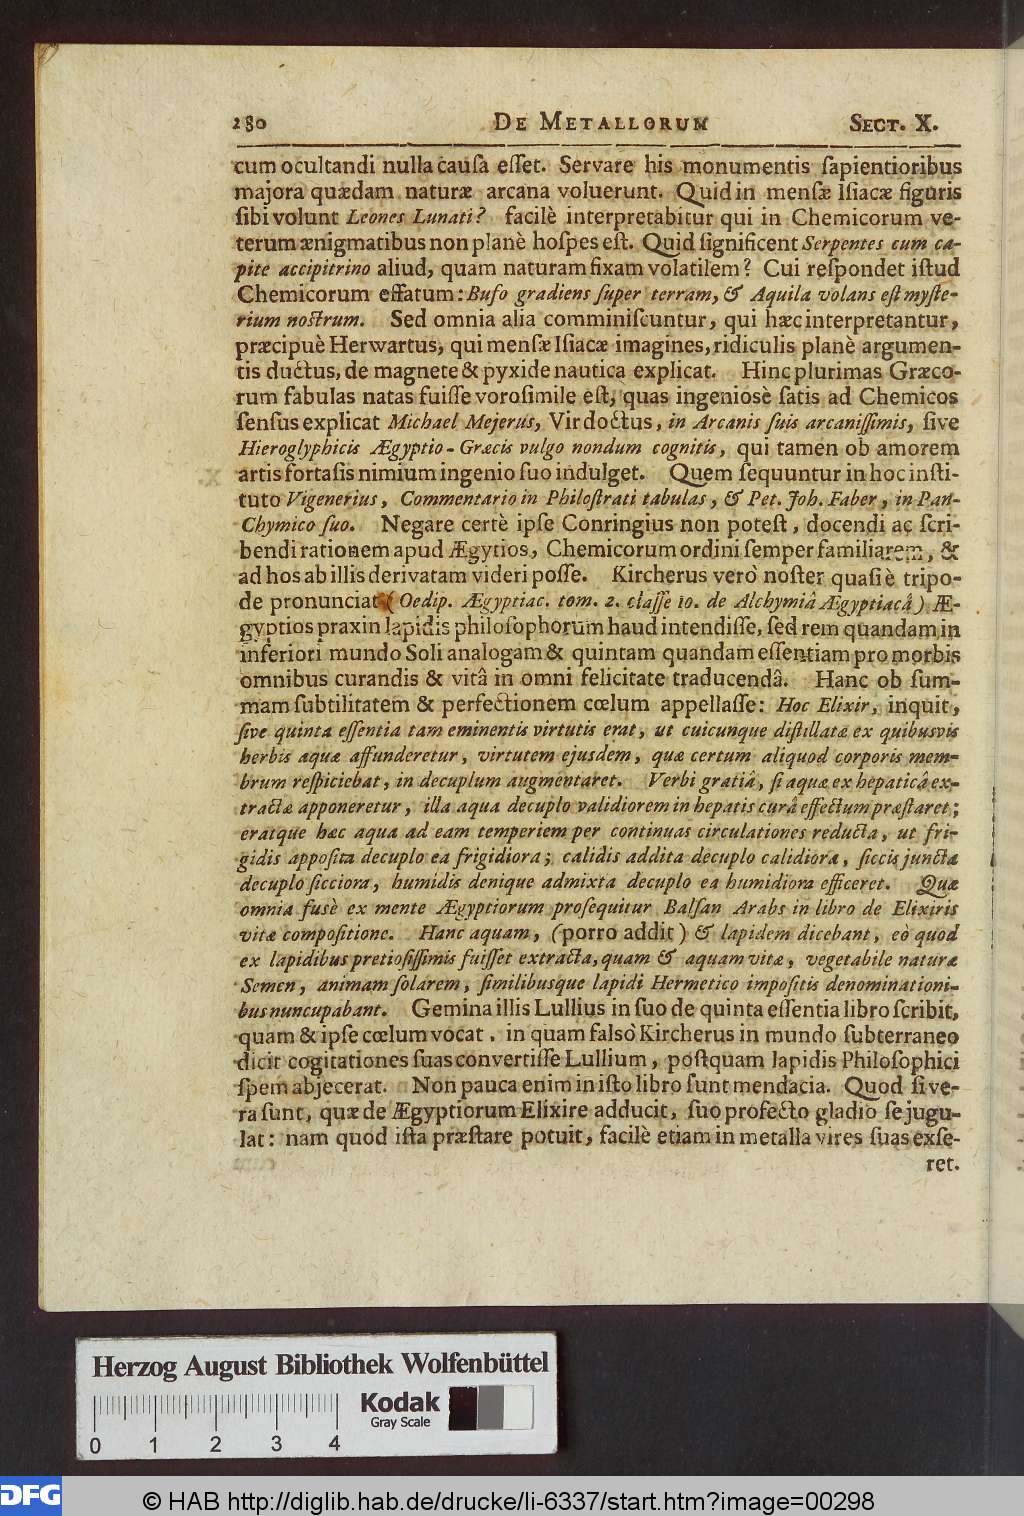 280 DE METALLORUM SECT. X.
cum ocultandi nulla cauſa eſſet. Servare his monumentis ſapientioribus
majora quædam naturæ arcana voluerunt. Quid in menſæ Iſiacæ figuris
ſibi volunt Leones Lunati? facilè interpretabitur qui in Chemicorum ve-
terum ænigmatibus non planè hoſpes eſt. Quid ſignificent Serpentes cum ca-
pite accipitrino aliud, quam naturam fixam volatilem? Cui reſpondet iſtud
Chemicorum effatum: Bufo gradiens ſuper terram, & Aquila volans eſt myſte-
rium noſtrum. Sed omnia alia comminiſcuntur, qui hæc interpretantur,
præcipuè Herwartus, qui menſæ Iſiacæ imagines, ridiculis planè argumen-
tis ductus, de magnete & pyxide nautica explicat. Hinc plurimas Græco-
rum fabulas natas fuiſſe voroſimile eſt, quas ingeniosè ſatis ad Chemicos
ſenſus explicat Michael Mejerus, Vir doctus, in Arcanis ſuis arcaniſſimis, ſive
Hieroglyphicis Ægyptio-Græcis vulgo nondum cognitis, qui tamen ob amorem
artis fortaſis nimium ingenio ſuo indulget. Quem ſequuntur in hoc inſti-
tuto Vigenerius, Commentario in Philoſtrati tabulas, & Pet. Joh. Faber, in Pan-
Chymico ſuo. Negare certè ipſe Conringius non poteſt, docendi ac ſcri-
bendi rationem apud Ægytios, Chemicorum ordini ſemper familiarem, &
ad hos ab illis derivatam videri poſſe. Kircherus verò noſter quaſi è tripo-
de pronunciat (Oedip. Ægyptiac. tom. 2. claſſe 10. de Alchymiâ Ægyptiacâ) Æ-
gyptios praxin lapidis philoſophorum haud intendiſſe, ſed rem quandam in
inferiori mundo Soli analogam & quintam quandam eſſentiam pro morbis
omnibus curandis & vitâ in omni felicitate traducendâ. Hanc ob ſum-
mam ſubtilitatem & perfectionem cœlum appellaſſe: Hoc Elixir, inquit,
ſive quinta eſſentia tam eminentis virtutis erat, ut cuicunque diſtillatæ ex quibusvis
herbis aquæ affunderetur, virtutem ejusdem, quæ certum aliquod corporis mem-
brum reſpiciebat, in decuplum augmentaret. Verbi gratiâ, ſi aquæ ex hepaticâ ex-
tractæ apponeretur, illa aqua decuplo validiorem in hepatis curâ effectum præſtaret;
eratque hæc aqua ad eam temperiem per continuas circulationes reducta, ut fri-
gidis appoſita decuplo ea frigidiora; calidis addita decuplo calidiora, ſiccis juncta
decuplo ſicciora, humidis denique admixta decuplo ea humidiora efficeret. Quæ
omnia fusè ex mente Ægyptiorum proſequitur Balſan Arabs in libro de Elixiris
vitæ compoſitione. Hanc aquam, (porro addit) & lapidem dicebant, eò quod
ex lapidibus pretioſiſſimis fuiſſet extracta, quam & aquam vitæ, vegetabile naturæ
Semen, animam ſolarem, ſimilibusque lapidi Hermetico impoſitis denominationi-
bus nuncupabant. Gemina illis Lullius in ſuo de quinta eſſentia libro ſcribit,
quam & ipſe cœlum vocat. in quam falsò Kircherus in mundo ſubterraneo
dicit cogitationes ſuas convertiſſe Lullium, poſtquam lapidis Philoſophici
ſpem abjecerat. Non pauca enim in iſto libro ſunt mendacia. Quod ſi ve-
ra ſunt, quæ de Ægyptiorum Elixire adducit, ſuo profecto gladio ſe jugu-
lat: nam quod iſta præſtare potuit, facilè etiam in metalla vires ſuas exſe-
ret.
Herzog August Bibliothek Wolfenbüttel
Kodak
Gray Scale
0 1 2 3 4
DFG © HAB http://diglib.hab.de/drucke/li-6337/start.htm?image=00298